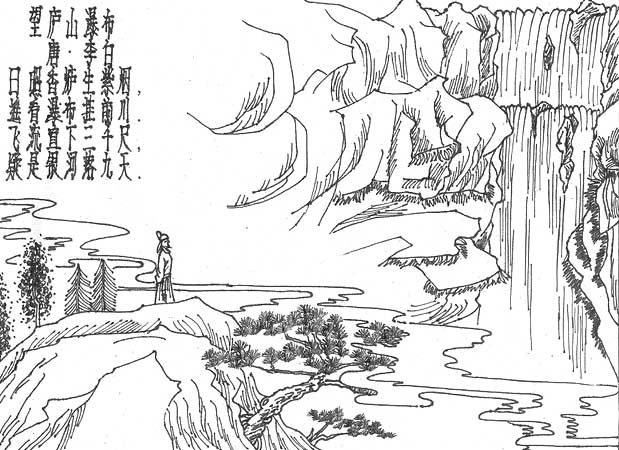 望庐山瀑布
唐·李白
日照香炉生紫烟，
遥看瀑布挂前川.
飞流直下三千尺，
疑是银河落九天.